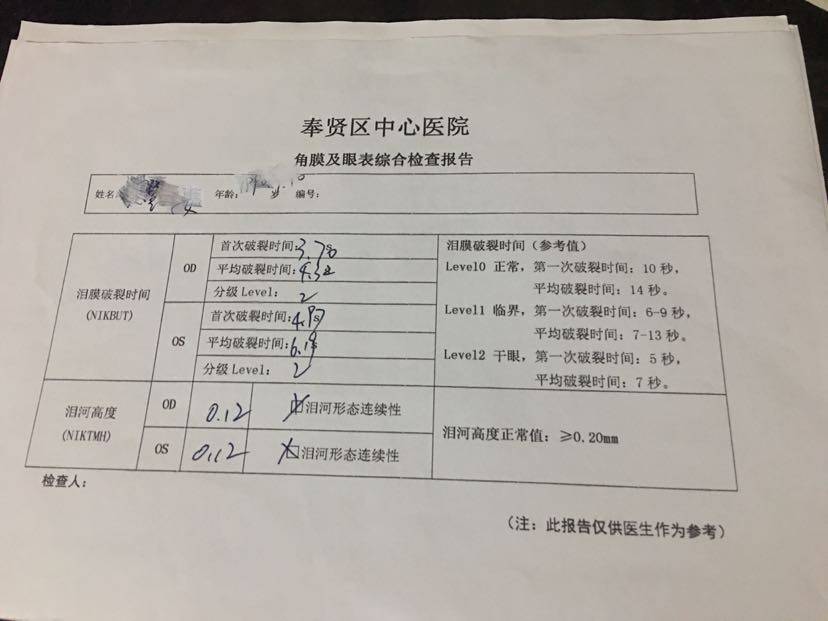 奉贤区中心医院
角膜及眼表综合检查报告
姓名: 年龄: 岁 编号:
泪膜破裂时间
(NIKBUT)
OD
首次破裂时间:3.78
平均破裂时间:4.32
分级Level: 2
OS
首次破裂时间:4.97
平均破裂时间:6.19
分级Level: 2
泪膜破裂时间(参考值)
Level0 正常,第一次破裂时间:10 秒,
平均破裂时间:14 秒。
Level1 临界,第一次破裂时间:6-9 秒,
平均破裂时间:7-13 秒。
Level2 干眼,第一次破裂时间:5 秒,
平均破裂时间:7 秒。
泪河高度
(NIKTMH)
OD 0.12 泪河形态连续性
OS 0.12 泪河形态连续性
泪河高度正常值:≥0.20mm
检查人:
(注:此报告仅供医生作为参考)